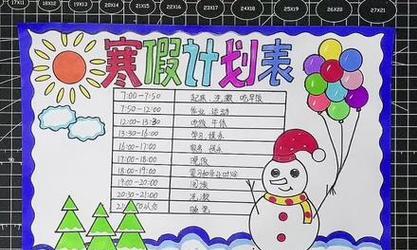 寒假计划表
7:00-7:50 起床、洗漱、吃早饭
7:50-12:00 作业、运动
12:00-13:30 午饭
13:30-16:00 学习、娱乐
16:00-17:00 娱乐
17:00-18:00 晚饭
18:00-19:00
19:00-20:00 阅读
20:30-21:00 洗漱
睡觉